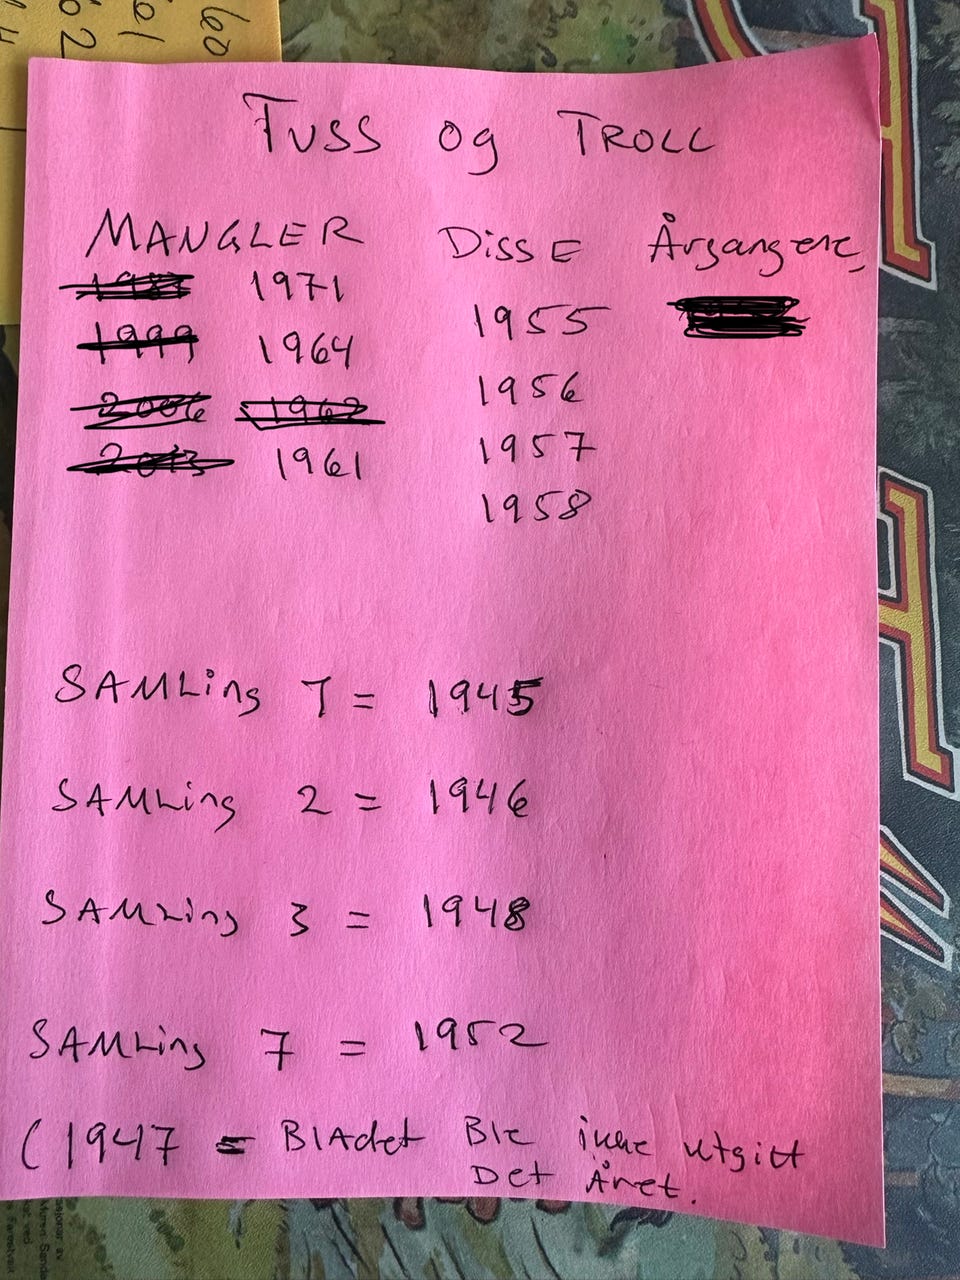 60
62
61
FUSS og TROLL
MANGLER DISSE Årgangene,
1983 1971
1955
1999 1964
1956
2006 1962
1957
2013 1961
1958
SAMLing 1 = 1945
SAMLing 2 = 1946
SAMLing 3 = 1948
SAMLing 7 = 1952
(1947 = BlAdet Ble ikke utgitt
Det Året.